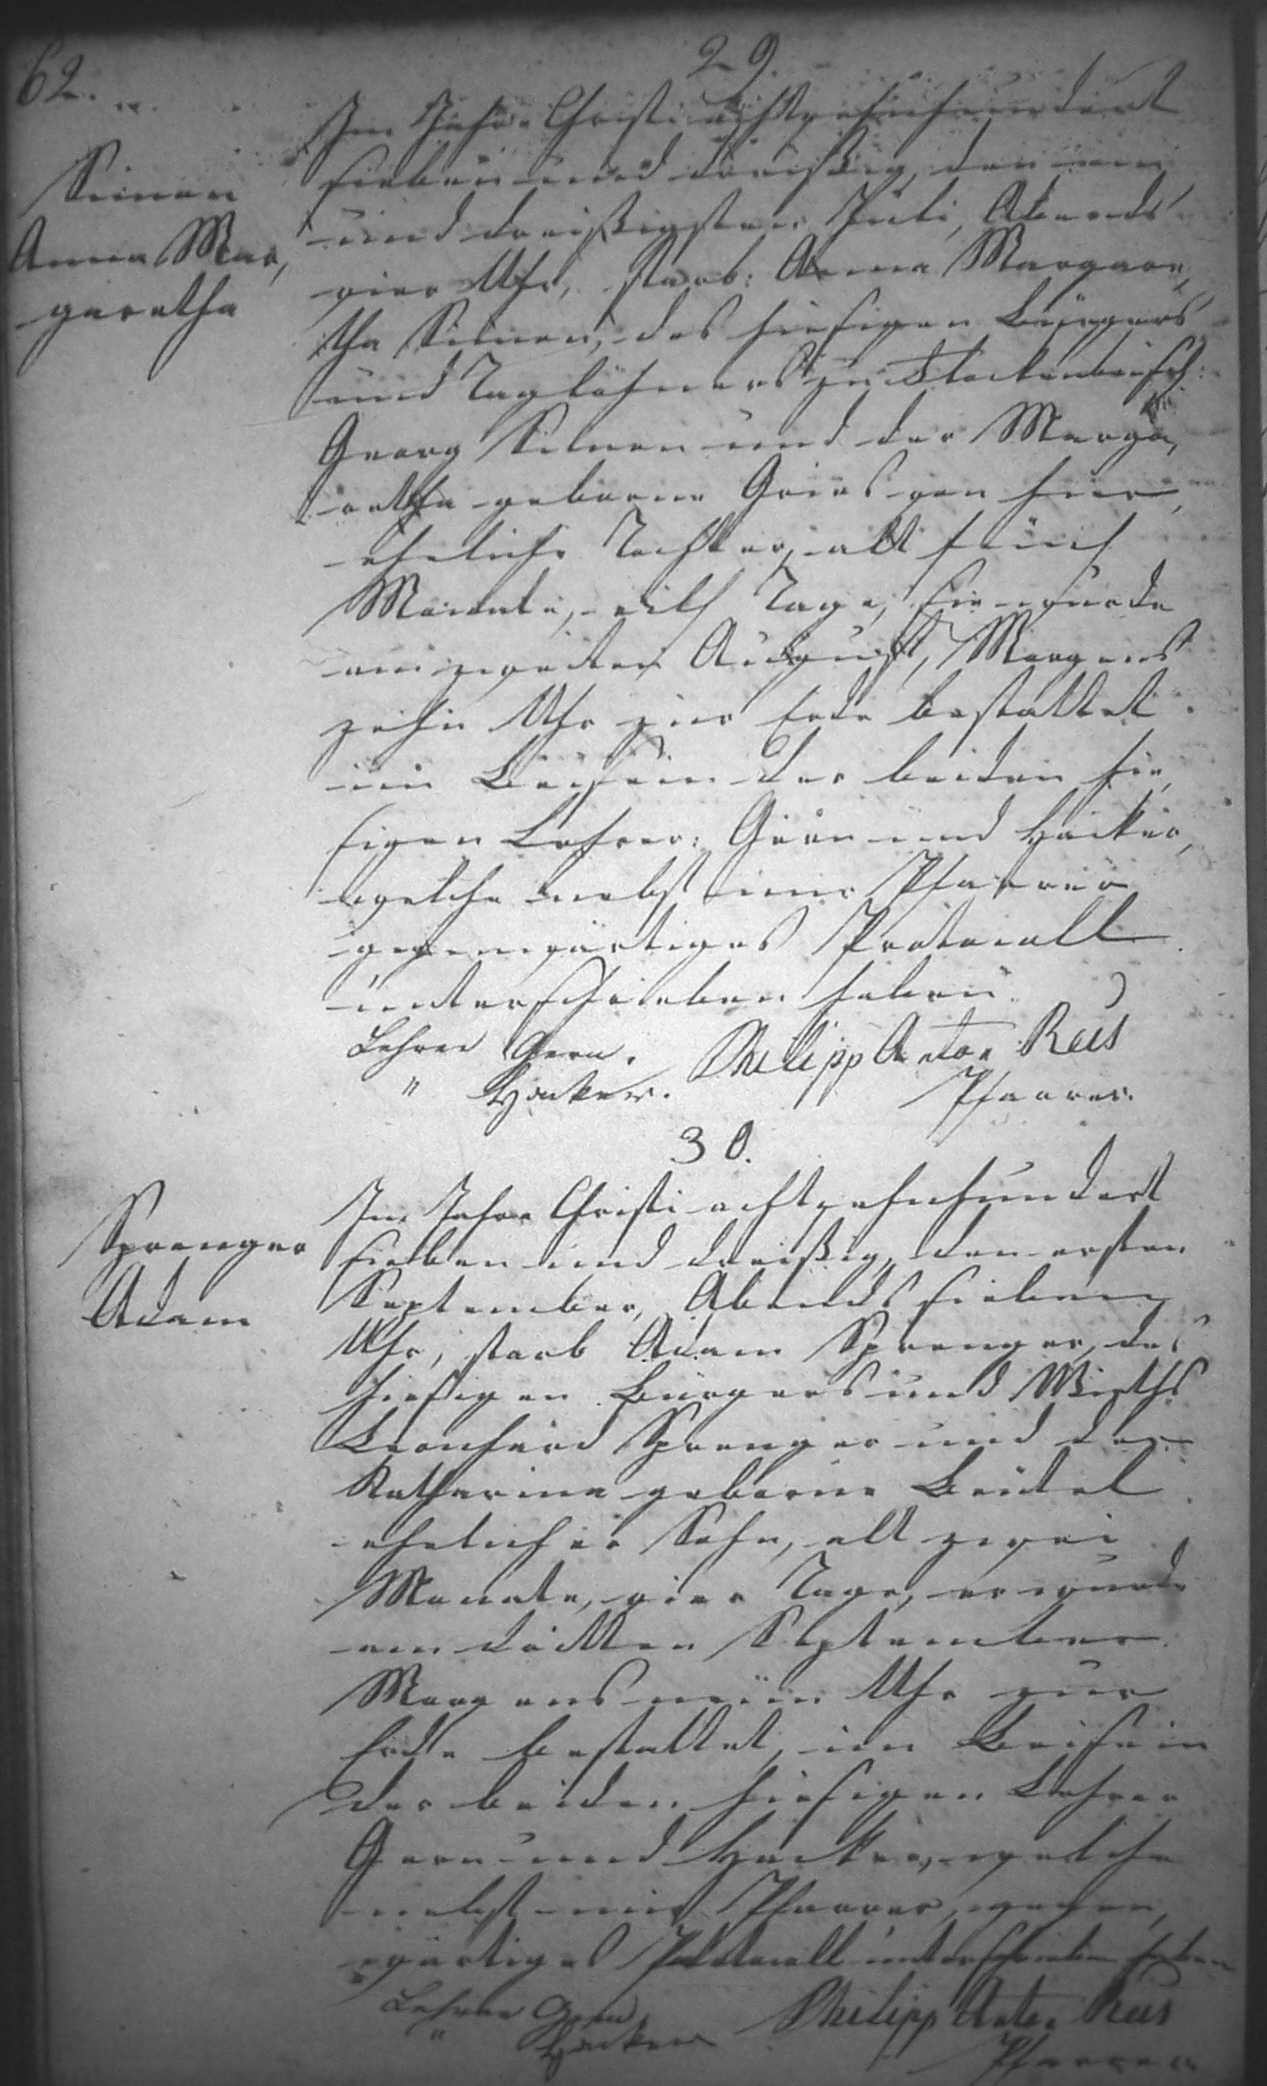 62.
29.
Simon
Anna Mar,
garetha
Im Jahre Christi achtzehnhundert
sieben und dreißig, den ein
und dreißigsten Juli, Abends
vier Uhr, starb: Anna Margare,
tha Simon, des hiesigen Bürgers
und Taglöhners zu
Georg Simon und der Marga,
retha geborne von hier,
eheliche Tochter, alt fünf
Monate, eilf Tage, sie wurde
am zweiten August, Morgens
zehn Uhr zur Erde bestattet
im Beisein der beiden hie,
sigen Lehrer: Gern und Hacker,
welche nebst mir Pfarrer
gegenwärtiges Protocoll
unterschrieben haben.
Lehrer Gern.
" Hacker.
Philipp Anton Reis
Pfarrer.
30.
Sprenger
Adam
Im Jahre Christi achtzehnhundert
sieben und dreißig, den ersten
September, Abends sieben
Uhr, starb Adam Sprenger, des
hiesigen Bürgers und Wirths
Leonhard Sprenger und der
Katharina geborne Beutel
ehelicher Sohn, alt zwei
Monate, vier Tage, er wurde
am dritten September
Morgens neun Uhr zur
Erde bestattet, im Beisein
der beiden hiesigen Lehrer
Gern und Hacker, welche
nebst mir Pfarrer, gegen,
wärtiges Protocoll unterschrieben haben
Lehrer Gern
" Hacker
Philipp Anton Reis
Pfarrer